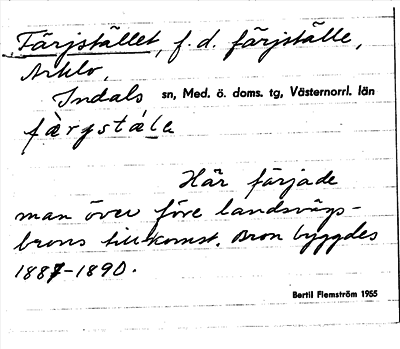 Färjstället, f. d. färjställe,
Arklo,
Indals sn, Med. ö. doms. tg, Västernorrl. län
færgstále
Här färjade
man över före landsvägs-
brons tillkomst. Bron byggdes
1887-1890.
Bertil Flemström 1955